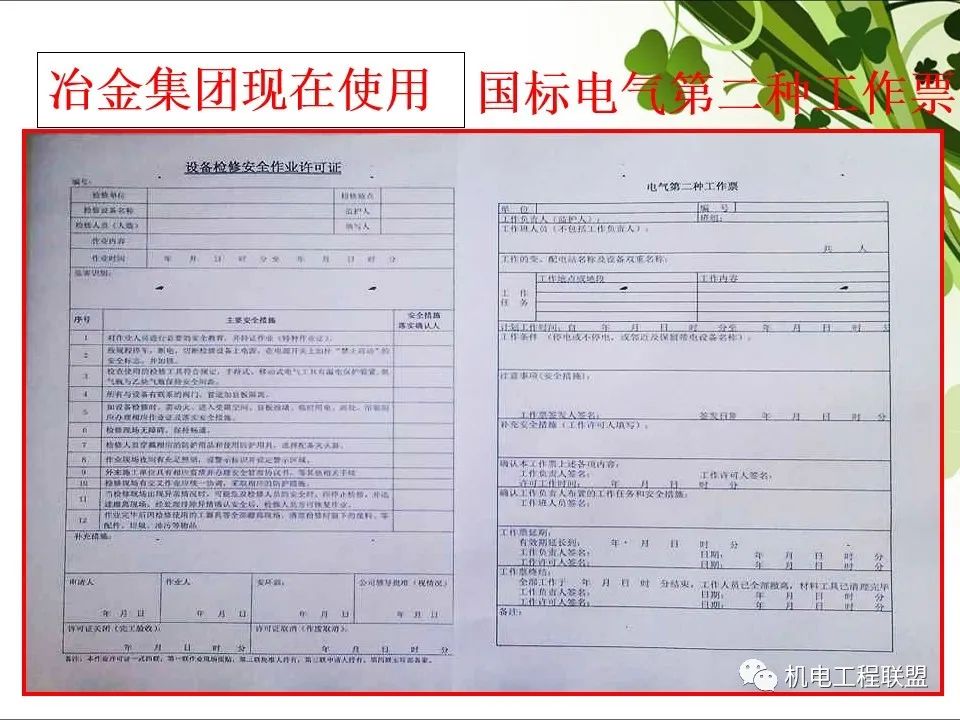 冶金集团现在使用
国标电气第二种工作票
设备检修安全作业许可证
编号:
检修单位
检修地点
检修设备名称
监护人
检修人员(人数)
填写人
作业内容
作业时间 年 月 日 时 分 至 年 月 日 时 分
危害识别:
序号 主要安全措施 安全措施
落实确认人
1 对作业人员进行必要的安全教育,并持证作业(特种作业证)。
2 按规程停车,断电,切断检修设备上电源,在电源开关上加挂“禁止启动”的
安全标志,并加锁。
3 检查使用的检修工具符合规定,手持式、移动式电气工具有漏电保护装置,氧
气瓶与乙炔气瓶保持安全间距。
4 所有与设备有联系的阀门、管道加盲板隔离。
5
应办理相应作业证及落实安全措施。
6 检修现场无障碍,保持畅通。
7 检修人员穿戴相应的防护用品和使用防护用具,选择配备灭火器。
8 作业现场夜间有充足照明,设警示标识并设定警示区域。
9 外来施工单位具有相应资质并办理安全管理协议书,等其他相关手续
10 检修现场有交叉作业应统一协调,采取相应的防护措施。
11 当检修现场出现异常情况时,可能危及检修人员的安全时,应停止检修,并迅
速撤离现场,经处理排除异情确认安全后,检修人员方可恢复作业。
12 作业完毕后因检修使用的工器具等全部撤离现场,清理检修时留下的废料、零
配件、垃圾、油污等物品
补充措施:
申请人 作业人 安环部: 公司领导批准(视情况)
年 月 日 年 月 日 年 月 日 年 月 日
许可证关闭(完工验收): 许可证取消(作废取消):
年 月 日 时 分 年 月 日 时 分
备注:本作业许可证一式四联:第一联作业现场张贴,第二联批准人持有,第三联申请人持有,第四联主管部备案。
电气第二种工作票
单位 编号
工作负责人(监护人): 班组:
工作班人员(不包括工作负责人):
共 人
工作的变、配电站名称及设备双重名称:
工作任务
工作地点或地段 工作内容
计划工作时间:自 年 月 日 时 分至 年 月 日 时 分
工作条件(停电或不停电,或邻近及保留带电设备名称):
注意事项(安全措施):
工作票签发人签名: 签发日期 年 月 日 时 分
补充安全措施(工作许可人填写):
确认本工作票上述各项内容:
工作负责人签名: 工作许可人签名:
许可工作时间: 年 月 日 时 分
确认工作负责人布置的工作任务和安全措施:
工作班人员签名:
工作票延期:
有效期延长到: 年 月 日 时 分
工作负责人签名: 日期: 年 月 日 时 分
工作许可人签名: 日期: 年 月 日 时 分
工作票终结:
全部工作于 年 月 日 时 分结束,工作人员已全部撤离,材料工具已清理完毕
工作负责人签名: 日期: 年 月 日 时 分
工作许可人签名: 日期: 年 月 日 时 分
备注:
机电工程联盟